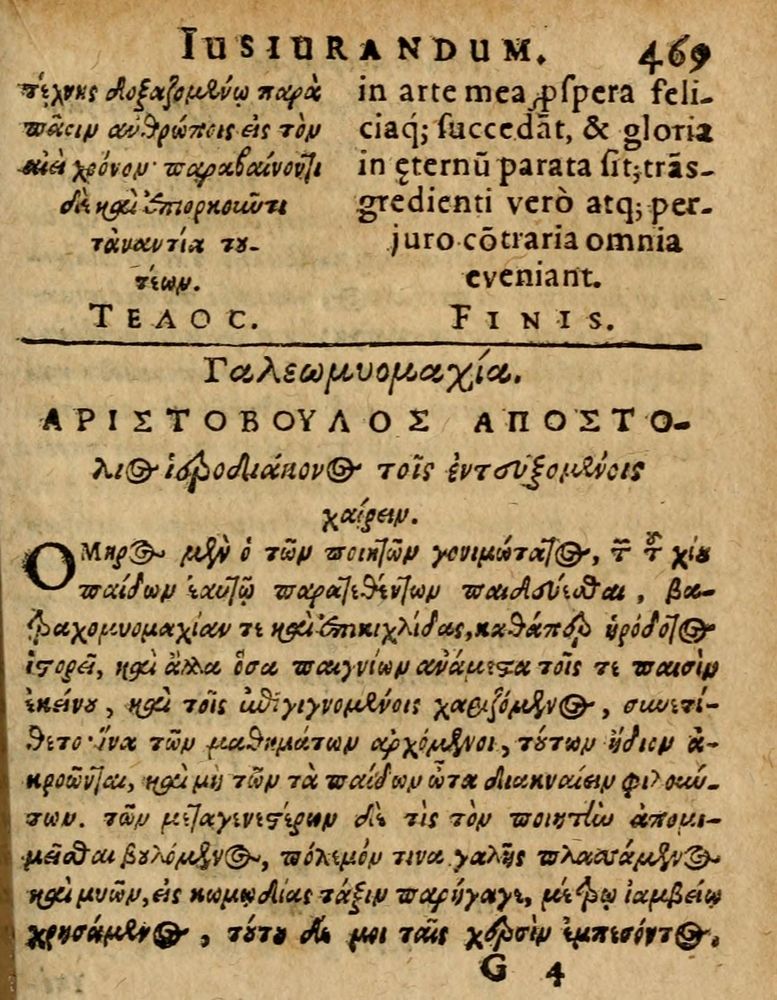 IUSIURANDUM. 469
τέχνης δοξαζομένῳ παρὰ
πᾶσιν ἀνθρώποις εἰς τὸν
αἰεὶ χρόνον· παραβαίνοντι
δὲ καὶ ἐπιορκοῦντι
τἀναντία του-
τέων.
ΤΕΛΟC.
in arte mea, ꝓspera feli-
ciaq́; succedāt, & gloria
in ęternū parata sit; trās-
gredienti verò atq; per-
juro cōtraria omnia
eveniant.
FINIS.
Γαλεωμυομαχία.
ΑΡΙΣΤΟΒΟΥΛΟΣ ΑΠΟΣΤΟ-
λιος ἱεροδιάκονος τοῖς ἐντευξομένοις
χαίρειν.
ΟΜηρος μὲν ὁ τῶν ποιητῶν γονιμώτατος, τῶν τοῦ χίου
παίδων ἑαυτῷ παρατεθέντων παιδεύεσθαι, βα-
τραχομυομαχίαν τε καὶ ἐπικιχλίδας, καθάπερ ἡρόδοτος
ἱστορεῖ, καὶ ἄλλα ὅσα παιγνίων ἀνάμεστα τοῖς τε παισὶν
ἐκείνου, καὶ τοῖς ἐπιγιγνομένοις χαριζόμενος, συνετί-
θετο· ἵνα τῶν μαθημάτων ἀρχόμενοι, τούτων ἥδιον ἀ-
κροῶνται, καὶ μὴ τῶν τὰ παίδων ὦτα διακναίειν φιλούν-
των. τῶν μεταγενεστέρων δέ τις τὸν ποιητὴν ἀπομι-
μεῖσθαι βουλόμενος, πόλεμόν τινα γαλῆς πλασάμενος
καὶ μυῶν, εἰς κωμῳδίας τάξιν παρήγαγε, μέτρῳ ἰαμβείῳ
χρησάμενος, τούτου δέ μοι ταῖς χερσὶν ἐμπεσόντος,
G 4